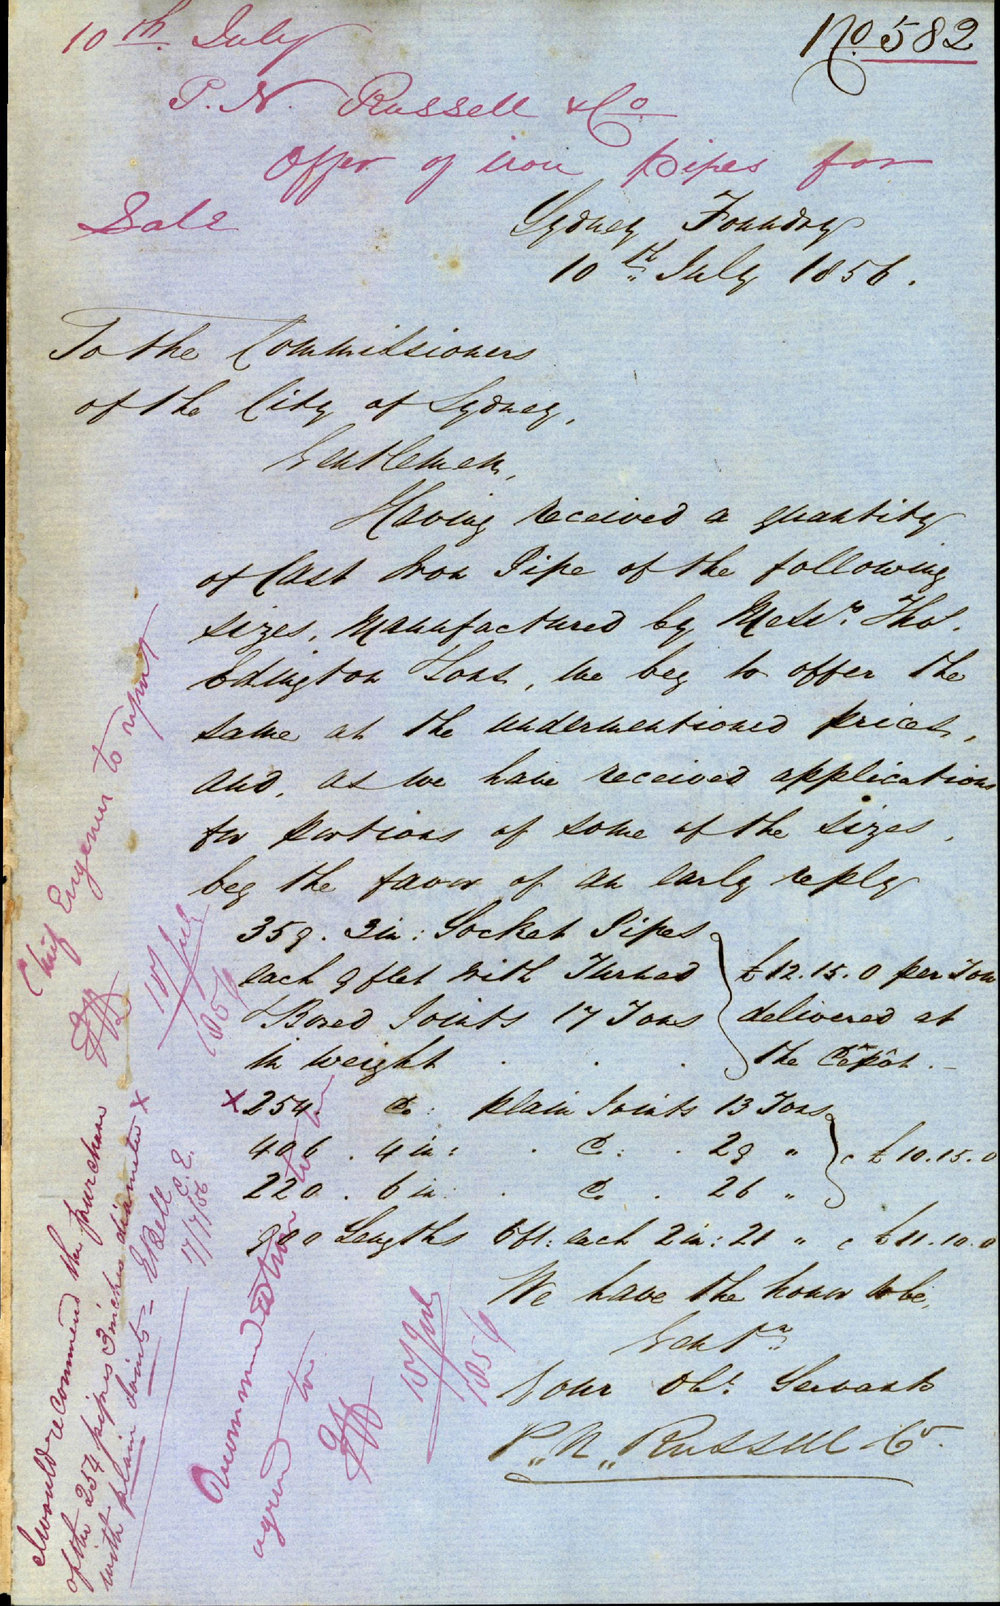 10th. July
No. 582
P. N. Russell & Co.
Offer of iron pipes for
Sale
Sydney Foundry
10th July 1856.
To the Commissioners
of the City of Sydney.
Gentlemen,
Having received a quantity
of Cast Iron Pipe of the following
sizes, Manufactured by Messrs. Thos.
Edington & Sons, we beg to offer the
same at the undermentioned prices,
and, as we have received applications
for portions of some of the sizes,
beg the favor of an early reply
359. 3in: Socket Pipes
each 9 feet with Turned
& Bored Joints 17 Tons
in weight . . .
£12.15.0 per Ton
delivered at
the Depôt.
x 254 Do: plain Joints 13 Tons
406. 4in: . Do: . 29 "
220. 6in . Do . 26 "
£10.15.0
900 Lengths 6ft: each 2in: 21 " £11.10.0
We have the honor to be,
Gentn
Your Obt. Servants
P. N. Russell & Co.
Chief Engineer to report
10/July
1856
I would recommend the purchase
of the 254 pipes 3 inches diameter x
with plain joints - E Bell
C. E.
17/7/56
Recommendation to be
agreed to
1856